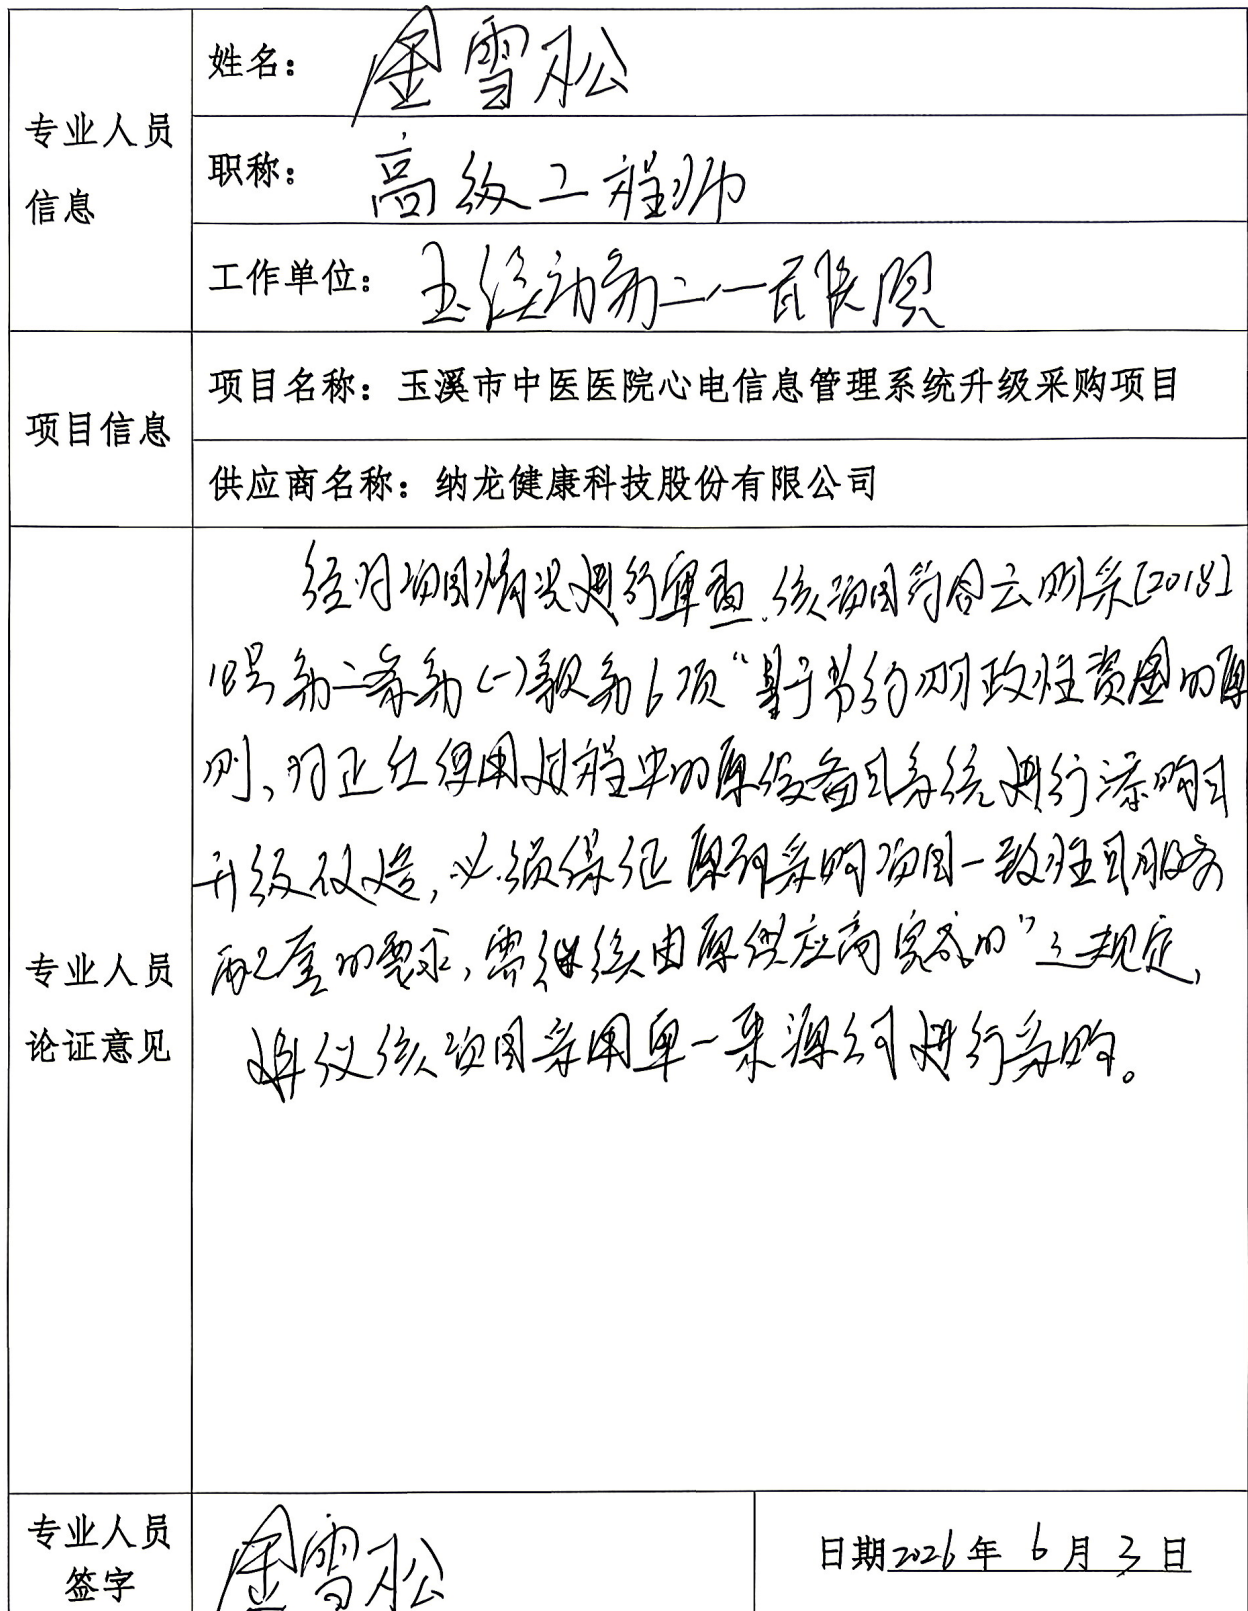 专业人员
信息
姓名： 金雪松
职称： 高级工程师
工作单位：
项目信息
项目名称：玉溪市中医医院心电信息管理系统升级采购项目
供应商名称：纳龙健康科技股份有限公司
专业人员
论证意见
经对项目情况进行审查，该项目符合云财采[2018]
18号第二条第(一)款第6项“基于节约财政性资金的原
则，对正在使用过程中的原设备或系统进行添购或
升级改造，必须保证原有采购项目一致性或服务
配套的要求，需继续由原供应商实施的”之规定，
建议该项目采用单一来源方式进行采购。
专业人员
签字
金雪松
日期2026年 6月 3日